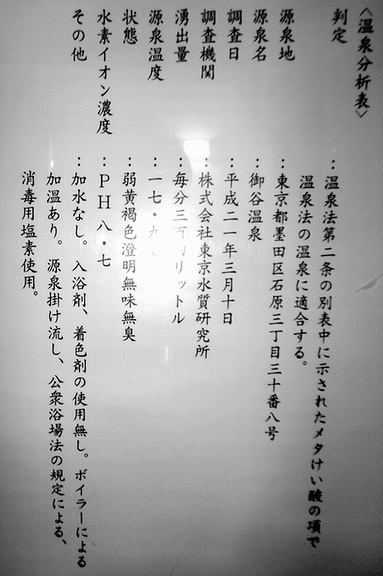 〈温泉分析表〉
判定：温泉法第二条の別表中に示されたメタけい酸の項で
温泉法の温泉に適合する。
源泉地：東京都墨田区石原三丁目三十番八号
源泉名：御谷温泉
調査日：平成二一年三月十日
調査機関：株式会社東京水質研究所
湧出量：毎分三百リットル
源泉温度：一七・九
状態：弱黄褐色澄明無味無臭
水素イオン濃度：ＰＨ八・七
その他：加水なし。入浴剤、着色剤の使用無し。ボイラーによる
加温あり。源泉掛け流し、公衆浴場法の規定による、
消毒用塩素使用。